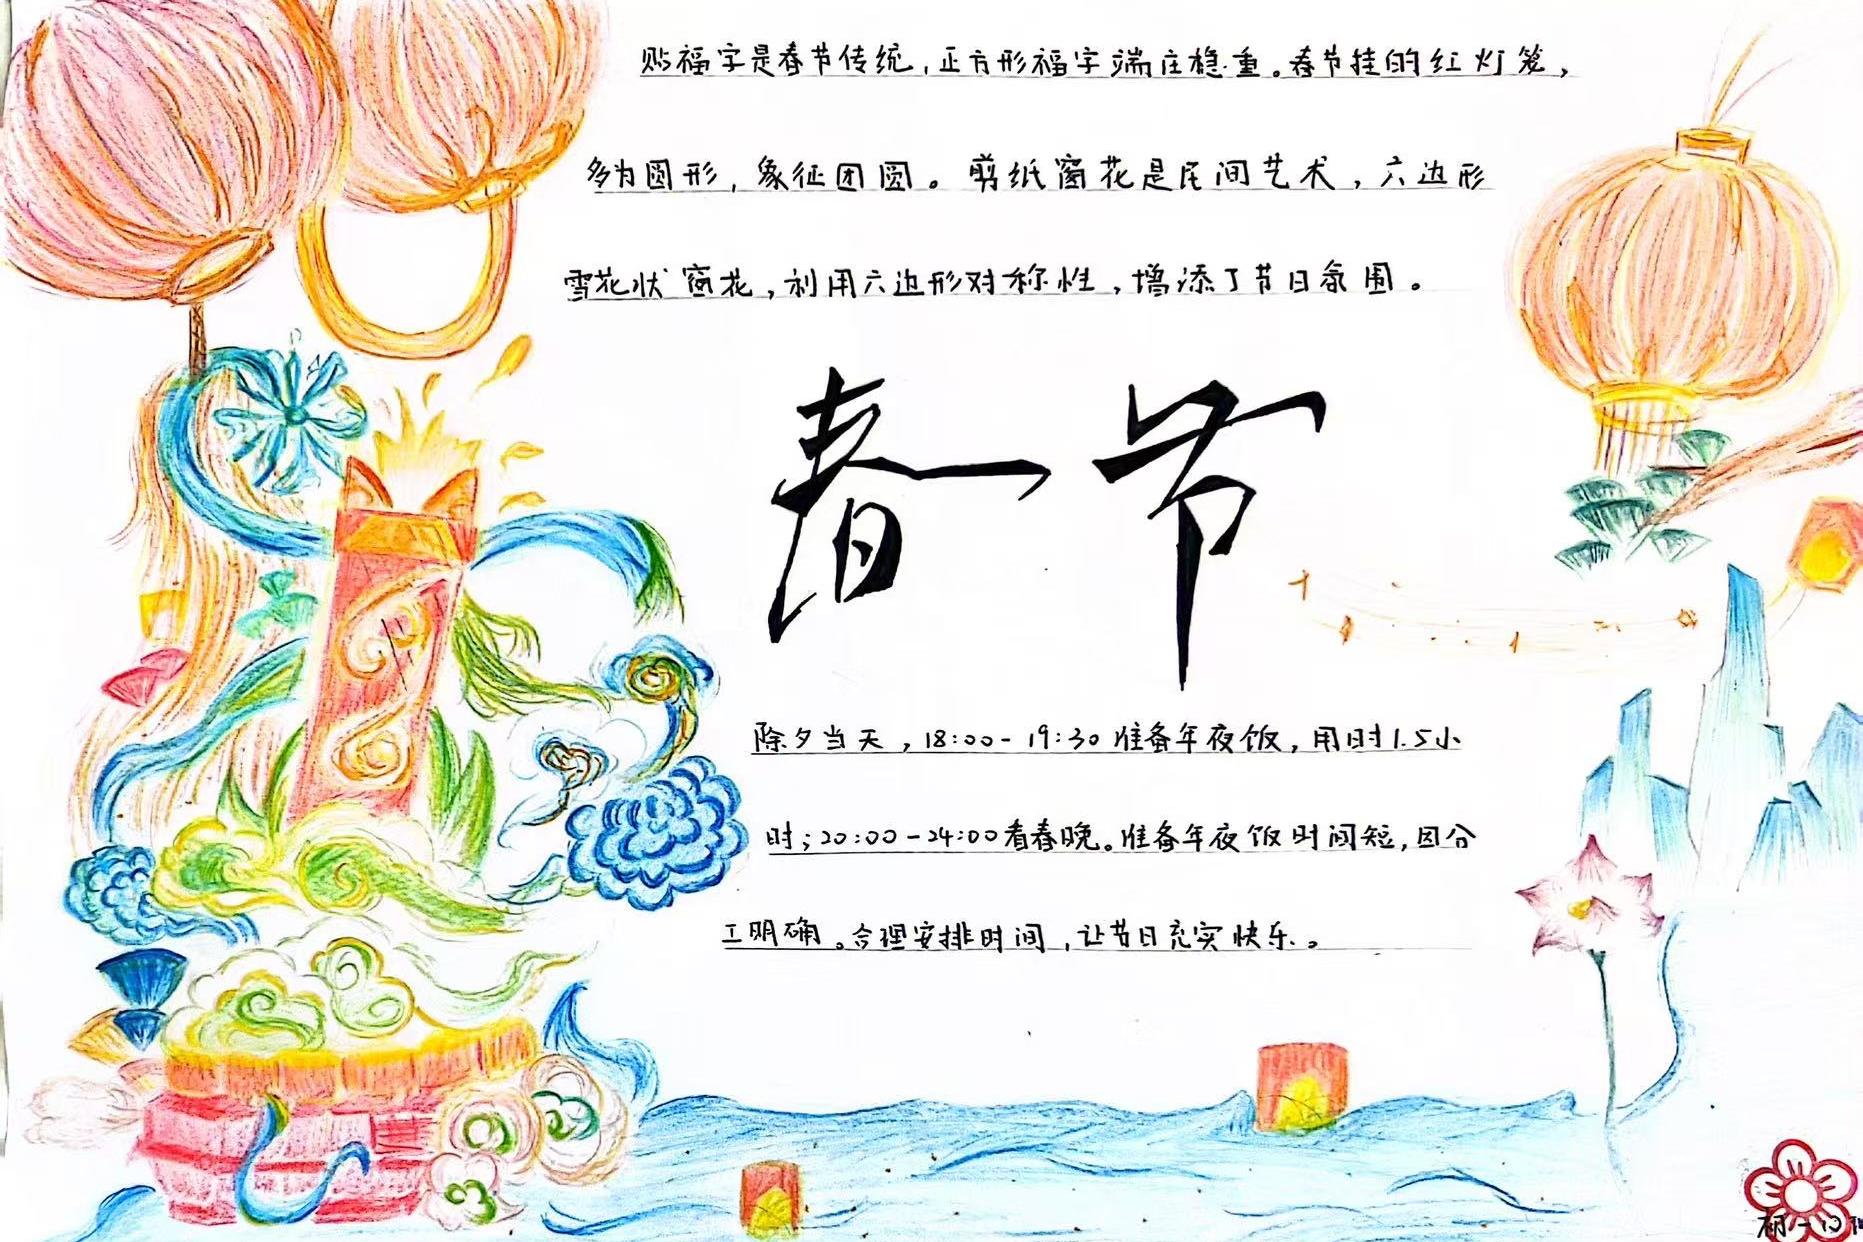 贴福字是春节传统,正方形福字端庄稳重。春节挂的红灯笼,
多为圆形,象征团圆。剪纸窗花是民间艺术,六边形
雪花状窗花,利用六边形对称性,增添了节日氛围。
春节
除夕当天,18:00-19:30准备年夜饭,用时1.5小
时;20:00-24:00看春晚。准备年夜饭时间短,因分
工明确。合理安排时间,让节日充实快乐。
初一